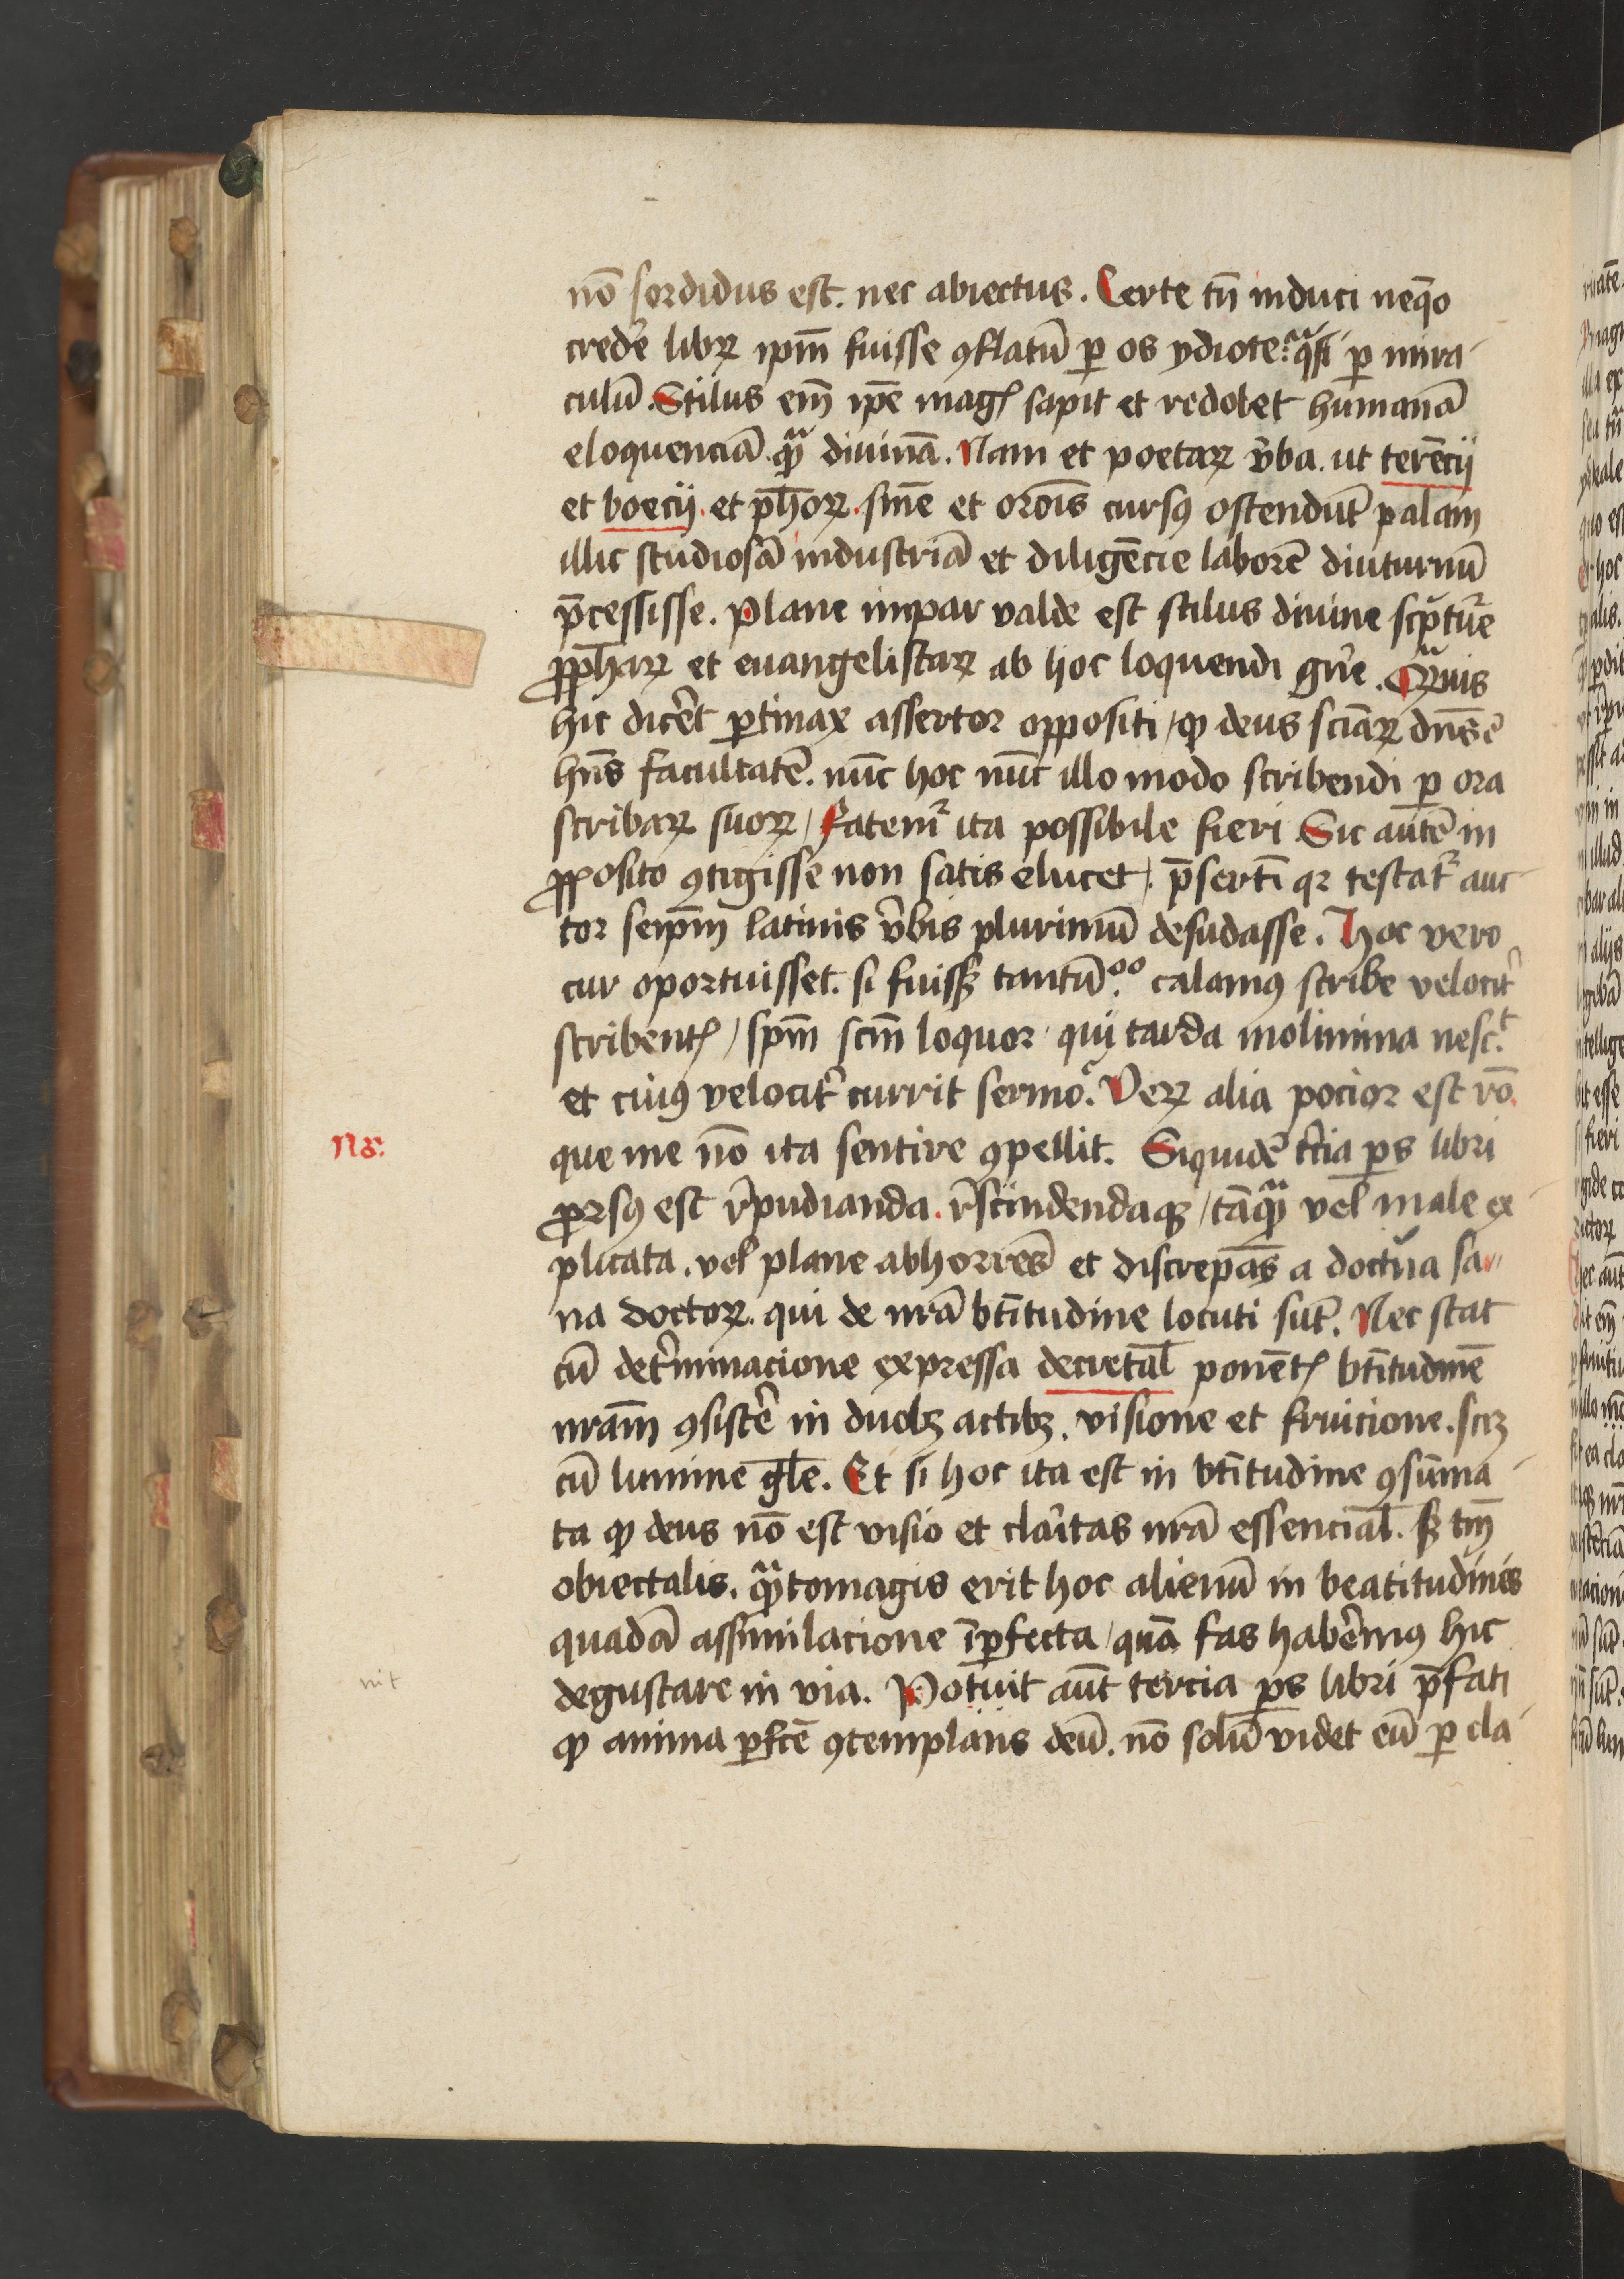 nō sordidus est. nec abiectus. Certe tn̄ induci neq̄o
credē libꝝ ip̄m fuisse ꝯflatū ꝑ os ydiote: qͣsi ꝑ mira-
culū. Stilus em̄ ip̄e magꝭ sapit et redolet humanā
eloquenciā. qͣꝫ diuinā. Nam et poetaꝝ v̄ba. ut terēcij
et boecij. et ph̄oꝝ. sm̄e et or̄ois cursꝰ ostendūt palam
illic studiosā industriā et diligēcie laborē diuturnū
p̄cessisse. Plane impar valde est stilus diuine scp̄tur̄e
ꝓph̄aꝝ et euangelistaꝝ ab hoc loquendi gn̄e. Qͣuis
hic dicēt ꝑtinax assertor oppositi / ꝙ deus sciāꝝ dn̄s ē
hn̄s facultatē. nūc hoc nūc illo modo scribendi ꝑ ora
scribaꝝ suoꝝ / Fatem̄ ita possibile fieri Sic autē in
ꝓposito ꝯtigisse non satis elucet /. p̄sertī qꝛ testat̄ auc-
tor seip̄m latinis v̄bis plurimū desudasse. Hoc vero
cur oportuisset. si fuissꝫ tantū.ᵒᵒ calamꝰ scribe velocit̄
scribentꝭ / sp̄m sc̄m loquor. quj tarda molimina nesc.ᵗ
et cuiꝰ velocit̄ currit sermo. Veꝝ alia pocior est rō.
Nō:
que me nō ita sentire ꝯpellit. Siquidē t̄cia ꝑs libri
ꝓrsꝰ est r̄pudianda. r̄scindendaqꝫ / tāqͣꝫ vel̄ male ex-
plicata. vel̄ plane abhorrēs et discrepās a doctͥna sa-
na doctoꝝ. qui de nr̄ā bt̄itudine locuti sūt. Nec stat
cū det̄minacione expressa decretal̄ ponētꝭ bt̄itudinē
nr̄am ꝯsistē in duobꝫ actibꝫ. visione et fruicione. scꝫ
cū lumine gl̄e. Et si hoc ita est in bt̄itudine ꝯsūma-
ta ꝙ deus nō est visio et claritas nr̄ā essencial̄. sꝫ tm̄
obiectalis. qͣꝫtomagis erit hoc alienū in beatitudinis
quadā assimilacione īꝑfecta / quā fas habēmꝰ hic
nit
degustare in via. Potuit aūt tercia ꝑs libri p̄fati
ꝙ anima ꝑfcē ꝯtemplāns deū. nō solū videt eū ꝑ cla-